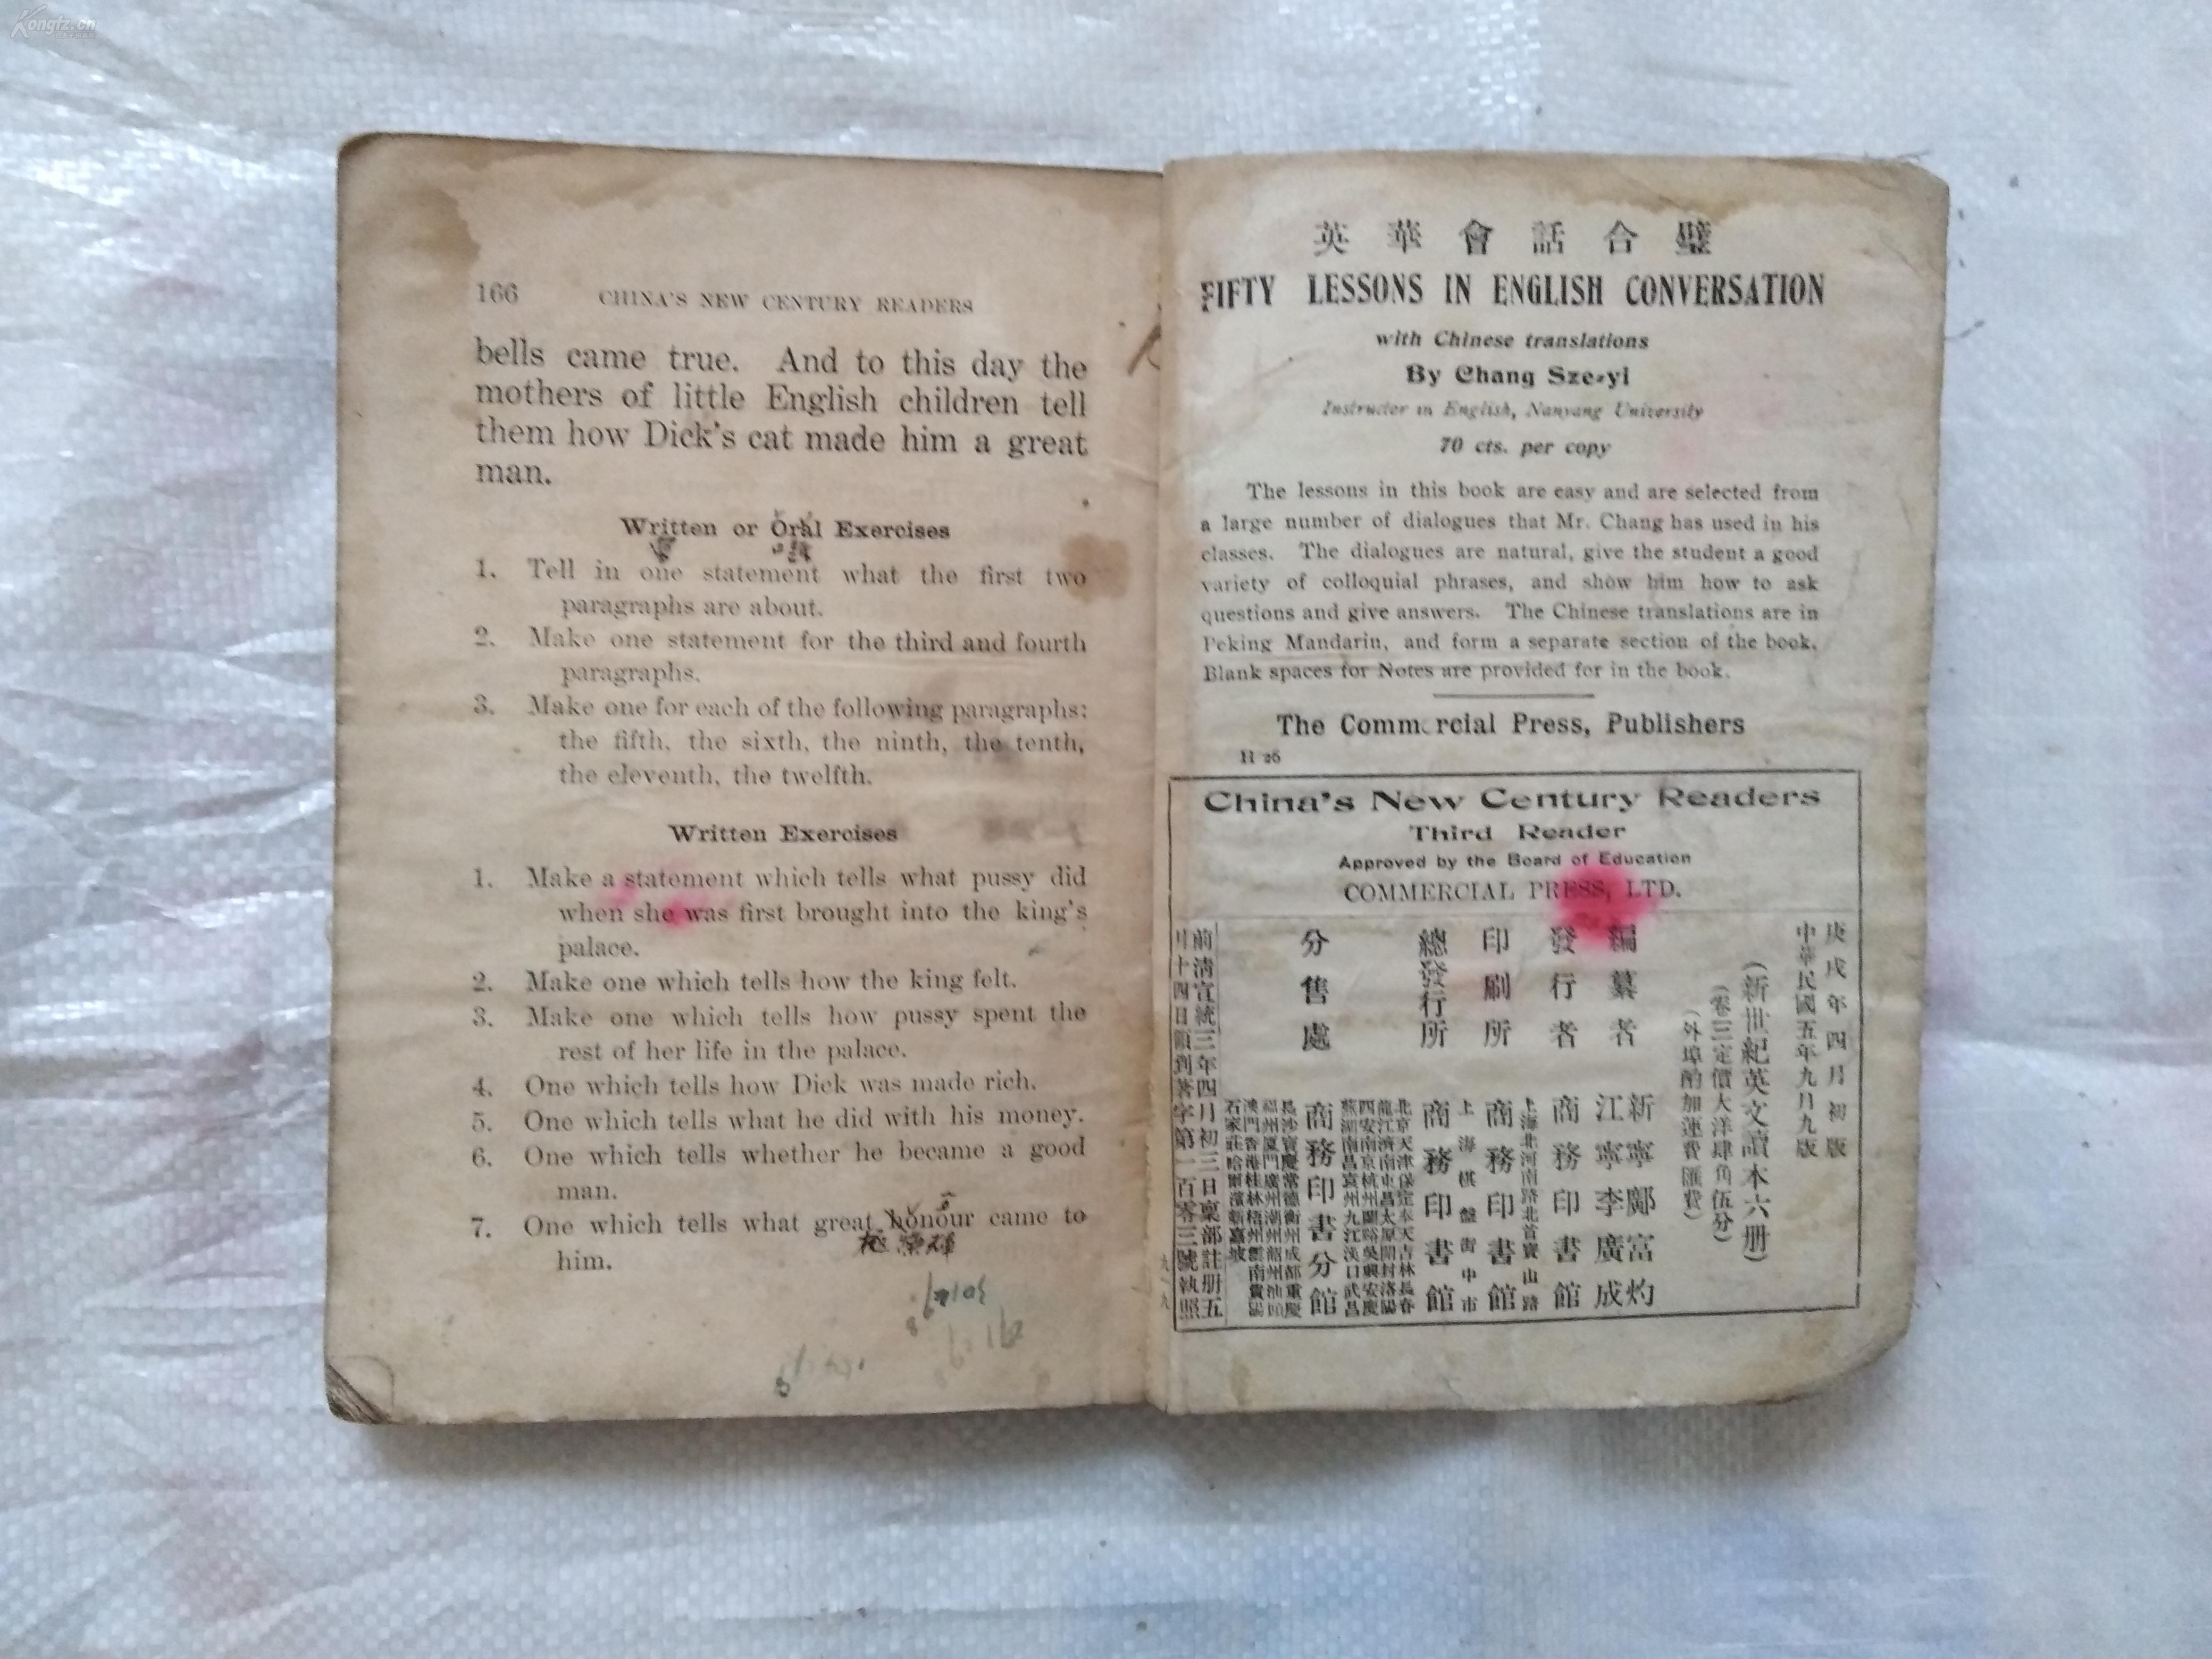 Kongfz.cn
166 CHINA'S NEW CENTURY READERS
bells came true. And to this day the
mothers of little English children tell
them how Dick's cat made him a great
man.
Written or Oral Exercises
1. Tell in one statement what the first two
paragraphs are about.
2. Make one statement for the third and fourth
paragraphs.
3. Make one for each of the following paragraphs:
the fifth, the sixth, the ninth, the tenth,
the eleventh, the twelfth.
Written Exercises
1. Make a statement which tells what pussy did
when she was first brought into the king's
palace.
2. Make one which tells how the king felt.
3. Make one which tells how pussy spent the
rest of her life in the palace.
4. One which tells how Dick was made rich.
5. One which tells what he did with his money.
6. One which tells whether he became a good
man.
7. One which tells what great honour came to
him.
英華會話合璧
FIFTY LESSONS IN ENGLISH CONVERSATION
with Chinese translations
By Chang Sze-yi
Instructor in English, Nanyang University
70 cts. per copy
The lessons in this book are easy and are selected from
a large number of dialogues that Mr. Chang has used in his
classes. The dialogues are natural, give the student a good
variety of colloquial phrases, and show him how to ask
questions and give answers. The Chinese translations are in
Peking Mandarin, and form a separate section of the book.
Blank spaces for Notes are provided for in the book.
The Commercial Press, Publishers
H 26
China's New Century Readers
Third Reader
Approved by the Board of Education
COMMERCIAL PRESS, LTD.
庚戌年四月初版
中華民國五年九月九版
(新世紀英文讀本六册)
(卷三定價大洋肆角伍分)
(外埠酌加運費匯費)
編纂者 新寧鄺富灼
江寧李廣成
發行者 商務印書館
上海北河南路北首寶山路
印刷所 商務印書館
上海棋盤街中市
總發行所 商務印書館
北京天津保定奉天吉林長春
龍江濟南東昌太原開封洛陽
四安南京杭州蘭谿吳興安慶
蕪湖南昌袁州九江漢口武昌
分售處 商務印書分館
長沙寶慶常德衡州成都重慶
福州廈門廣州潮州韶州汕頭
澳門香港桂林梧州雲南貴陽
石家莊哈爾濱新嘉坡
前清宣統三年四月初三日稟部註册五
月十四日領到著字第一百零三號執照